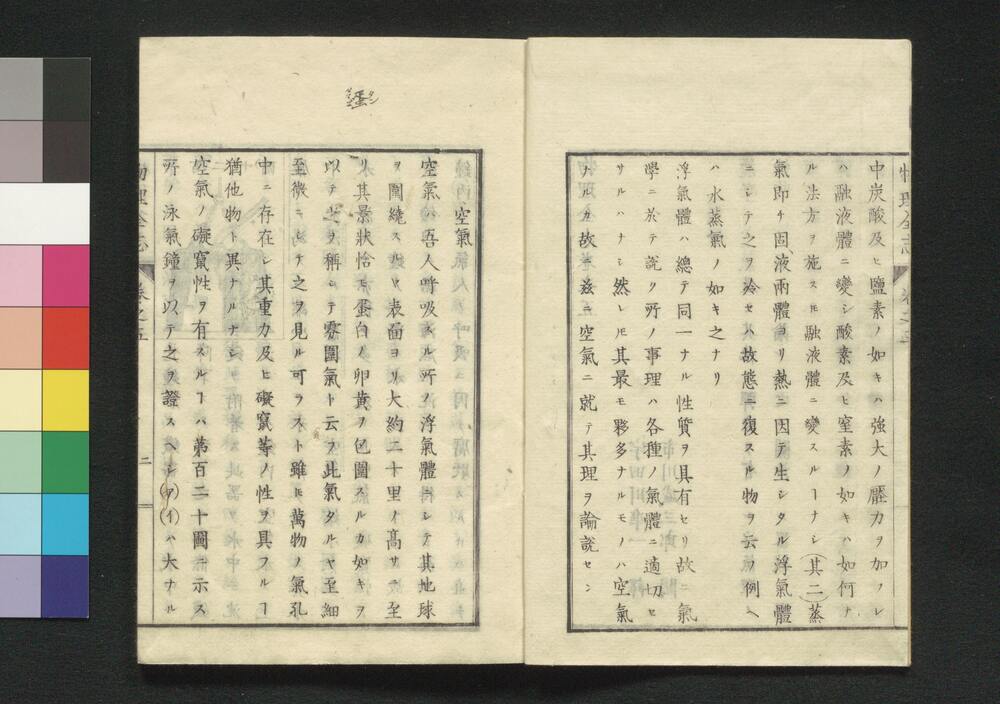 中炭酸及ヒ鹽素ノ如キハ強大ノ壓力ヲ加フレ
ハ融液體ニ變シ酸素及ヒ窒素ノ如キハ如何ナ
ル法方ヲ施スモ融液體ニ變スルヿナシ(其二)蒸
氣即チ固液兩體ヨリ熱ニ因テ生シタル浮氣體
ニシテ之ヲ冷セハ故態ニ復スル物ヲ云フ例ヘ
ハ水蒸氣ノ如キ之ナリ
浮氣體ハ總テ同一ナル性質ヲ具有セリ故ニ氣
學ニ於テ説ク所ノ事理ハ各種ノ氣體ニ適切セ
サルハナシ然レ𪜈其最モ夥多ナルモノハ空氣
ナルカ故ニ茲ニ空氣ニ就テ其理ヲ論説セン
空氣
空氣ハ吾人呼吸スル所ノ浮氣體ニシテ其地球
ヲ圍繞スルヤ表面ヨリ大約二十里ノ高サニ至
リ其景狀恰モ蛋白ノ卵黄ヲ包圍スルカ如キヲ
以テ之ヲ稱シテ雰圍氣ト云フ此氣タルヤ至細
至微ニシテ之ヲ見ル可ラスト雖𪜈萬物ノ氣孔
中ニ存在シ其重力及ヒ礙竄等ノ性ヲ具フルヿ
猶他物ト異ナルナシ
空氣ノ礙竄性ヲ有スルヿハ第百二十圖ニ示ス
所ノ泳氣鐘ヲ以テ之ヲ證スヘシ(ア)(イ)ハ大ナル
物理全志
卷之五
二